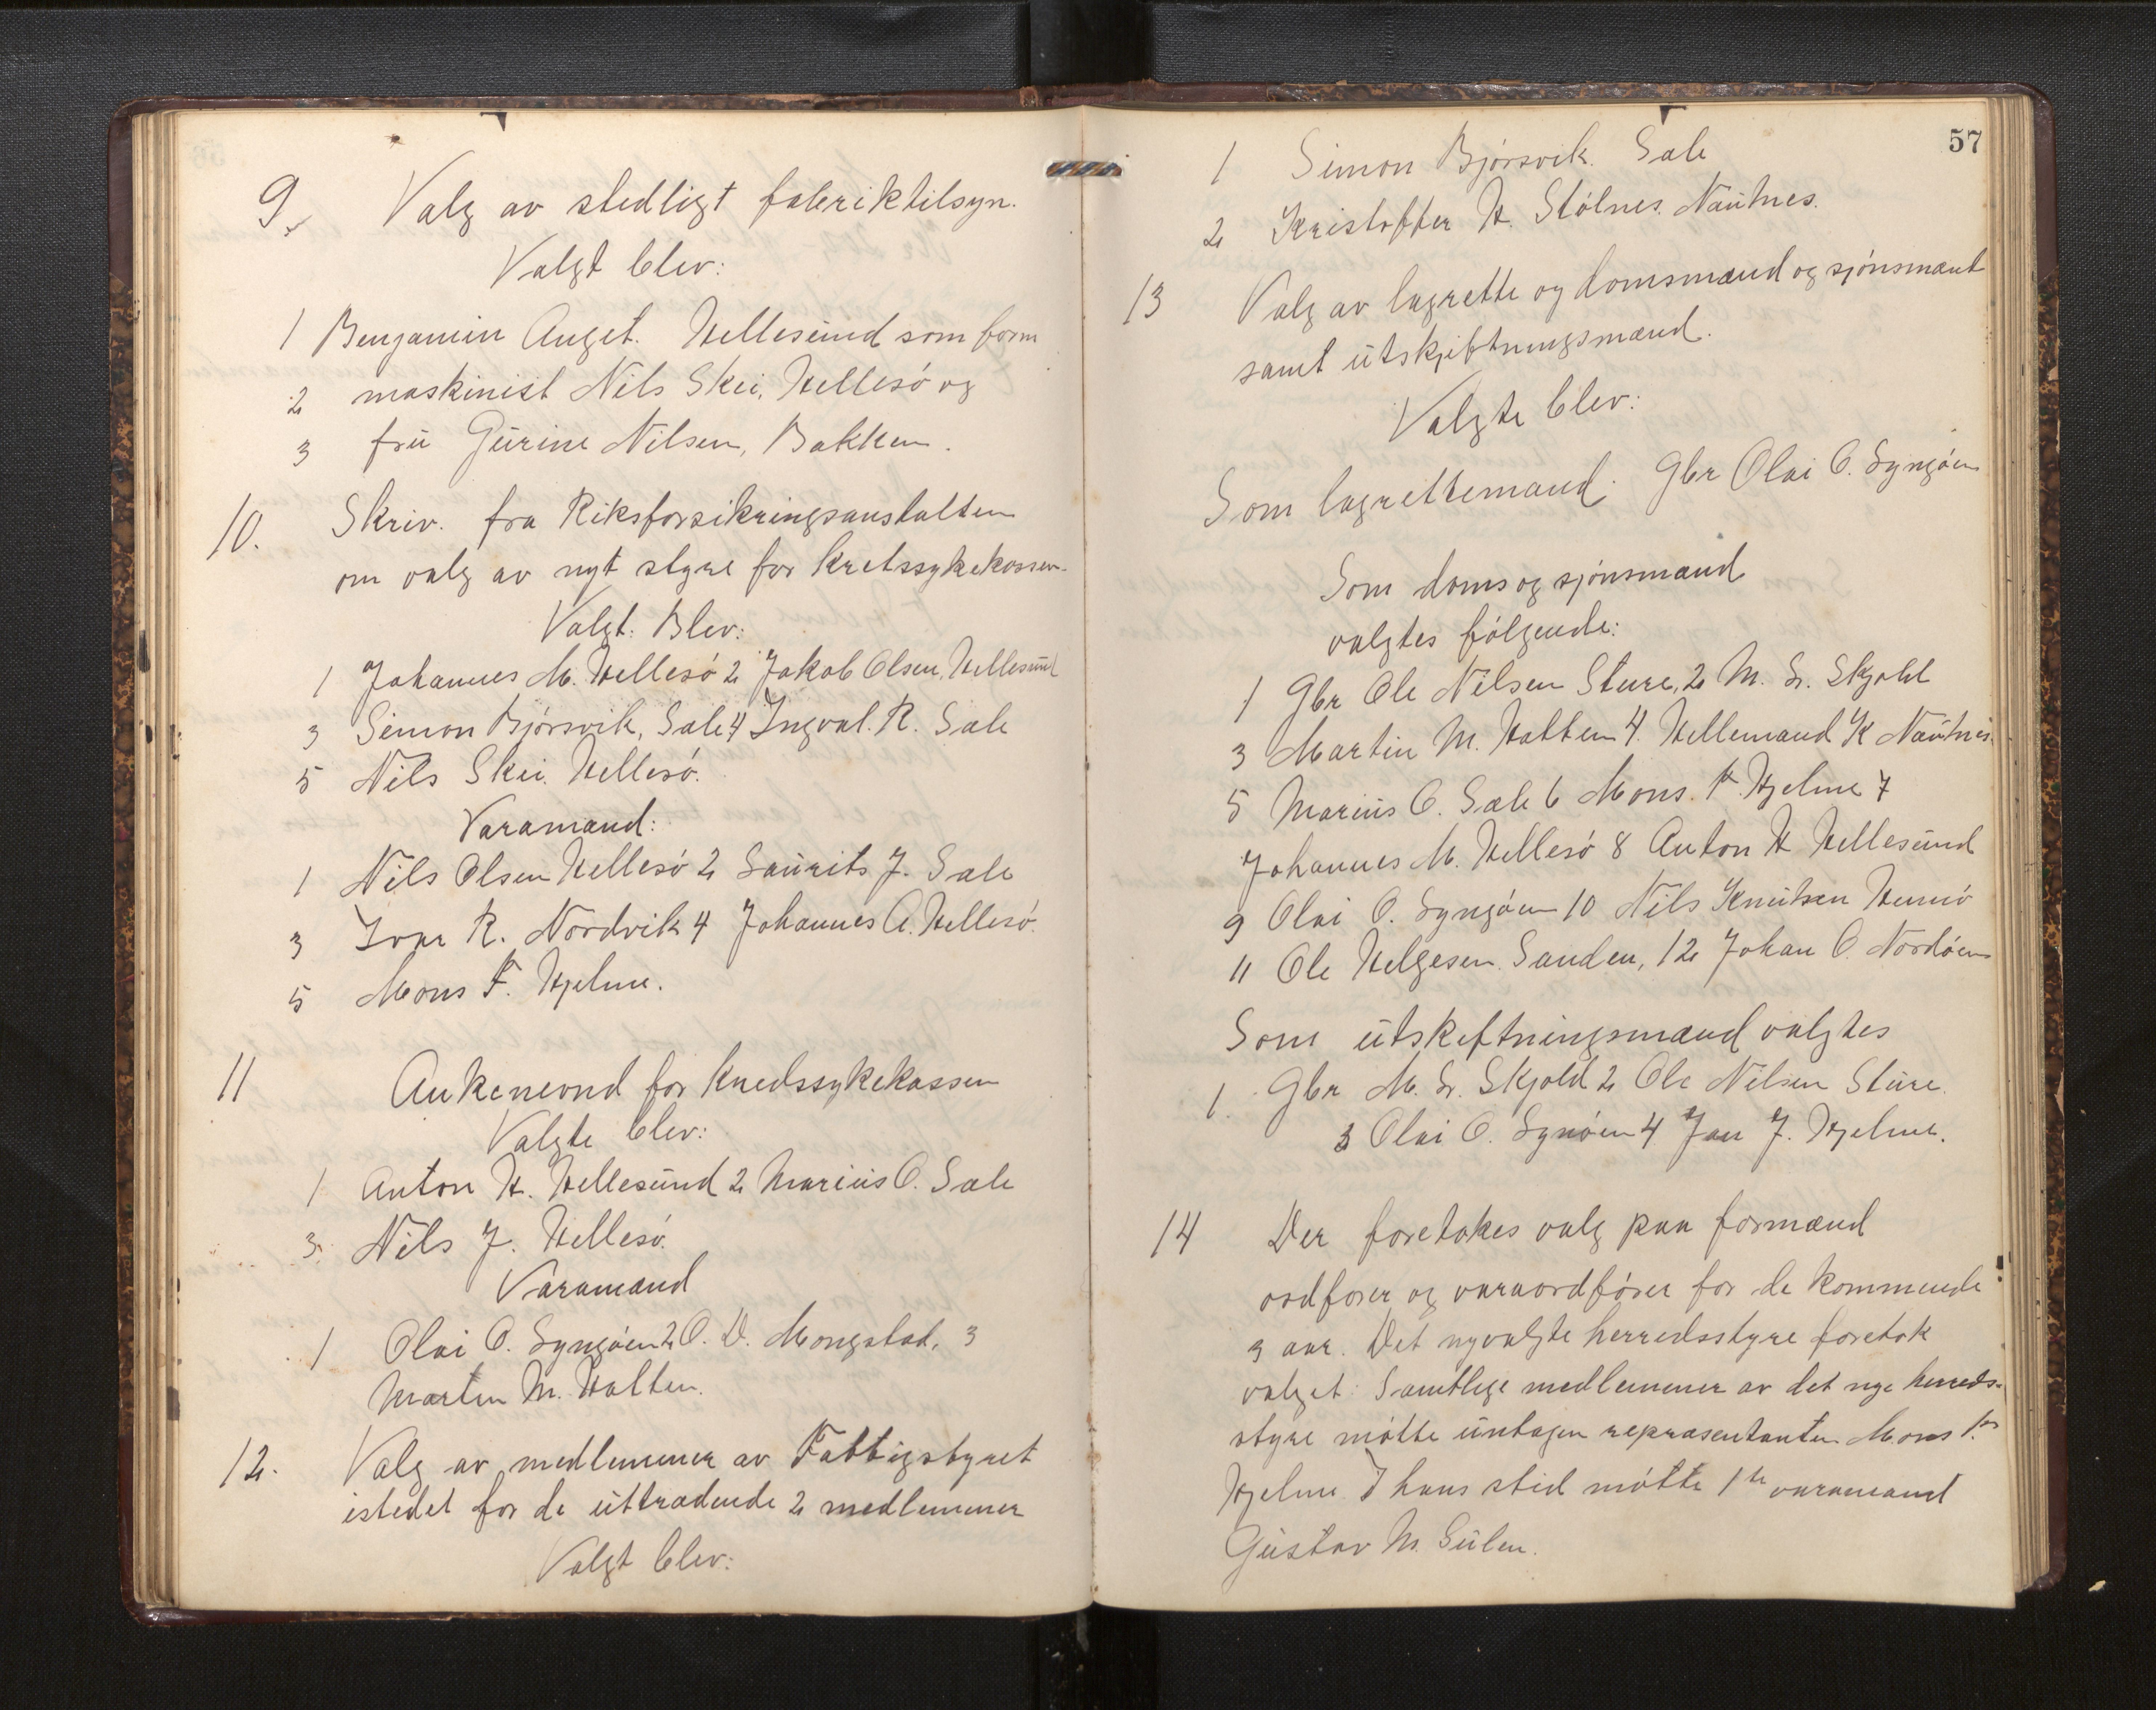 9. Valg av stedligt fabriktilsyn.
Valgt blev:
1 Benjamin Auget. Hellesund som form
2 maskinist Nils Skei, Hellesö og
3 fru Gurine Nilsen, Bakken.
10. Skriv. fra Riksforsikringsanstalten
om valg av nyt styre for Kretssykekassen.
Valgt: Blev:
1 Johannes M. Hellesö 2 Jakob Olsen, Hellesund
3 Simon Bjørsvik, Sæle 4 Ingval. R. Sæle
5 Nils Skei. Hellesö.
Varamænd:
1 Nils Olsen Hellesö 2 Laurits J. Sæle
3 Ivar R. Nordvik 4 Johannes A. Hellesö.
5 Mons F. Hjelme.
11 Ankenevnd for Kredssykekassen
Valgte blev:
1 Anton H. Hellesund 2 Marius O. Sæle
3. Nils J. Hellesö.
Varamænd
1 Olai O. Syngöen 2 O. D. Mongstad, 3
Martin M. Halten.
12. Valg av medlemmer av Fattigstyret
istedet for de uttrædende 2 medlemmer
Valgt blev:
57
1 Simon Bjørsvik. Sæle
2 Kristoffer H. Stölnes. Nautnes.
13 Valg av lagrette og domsmænd og sjönsmænd
samt utskjiftningsmænd.
Valgte blev:
Som lagrettemand: Gbr Olai O. Syngöen
Som doms og sjönsmænd
valgtes følgende:
1 Gbr Ole Nilsen Sture, 2 M. L. Skjold
3 Martin M. Hatten 4. Hellemand K Nautnes.
5 Marius O. Sæle 6 Mons. F. Hjelme 7
Johannes M. Hellesö 8 Anton H Hellesund
9 Olai O. Syngöen 10 Nils Knutsen Hernö
11 Ole Helgesen. Sanden, 12 Johan O. Nordöen
Som utskeftningsmænd valgtes
1. Gbr M. L. Skjold 2 Ole Nilsen Sture.
3 Olai O. Synöen 4 Jan J. Hjelme.
14 Der foretokes valg paa formænd
ordförer og varaordförer for de kommende
3 aar. Det nyvalgte herredsstyre foretok
valget: Samtlige medlemmer av det nye herreds-
styre mötte untagen repræsentanten Mons F.
Hjelme. I hans sted mötte 1te varamand
Gustav M. Sulen.